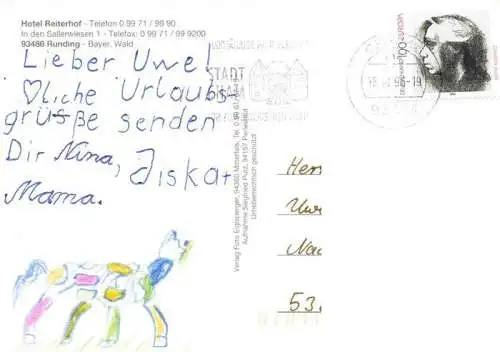 Hotel Reiterhof - Telefon 0 99 71 / 99 90
In den Sallerwiesen 1 - Telefax: 0 99 71 / 99 9200
93486 Runding - Bayer. Wald
Lieber Uwe!
♡liche Urlaubs-
grüße senden
Dir Nina, Jiska +
Mama.
STADT
EUROPA
100
Verlag Foto Eiglsperger, 94360 Mitterfels, Tel. 0 99 61/
Aufnahme Siegfried Putz, 94157 Perlesreut
Urheberrechtlich geschützt
Uw
Na
53.